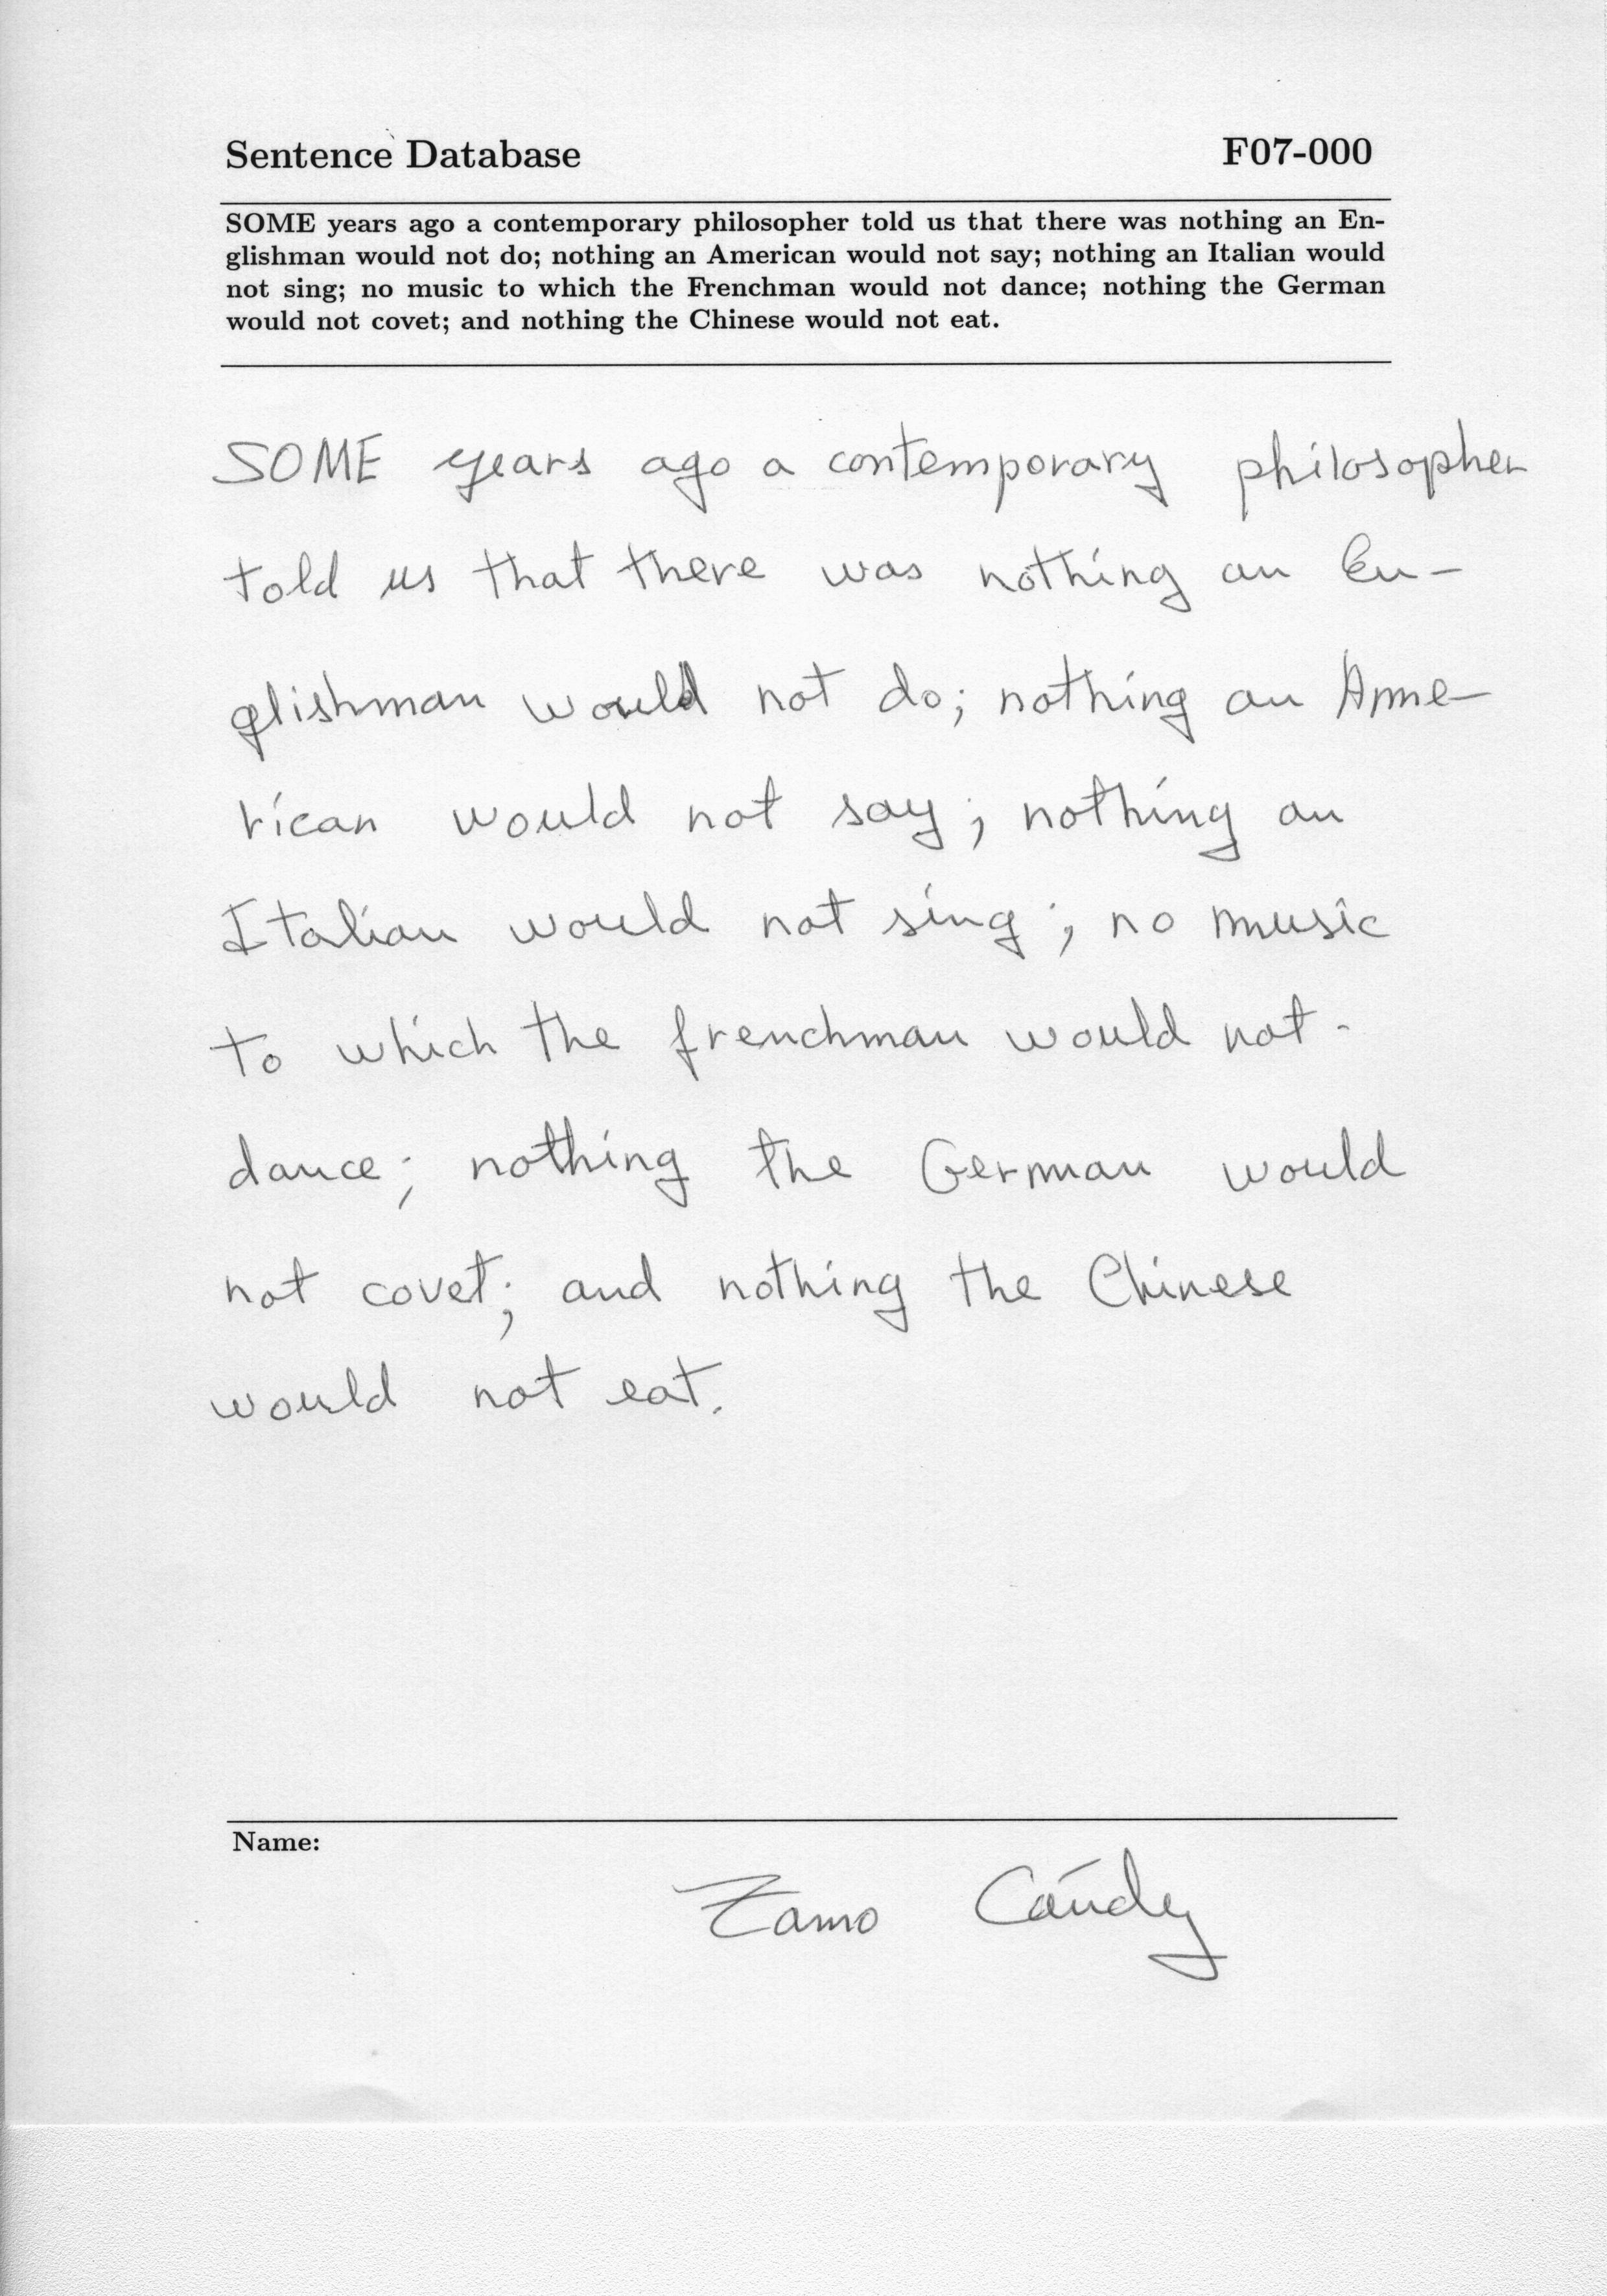 Sentence Database F07-000
SOME years ago a contemporary philosopher told us that there was nothing an En-
glishman would not do; nothing an American would not say; nothing an Italian would
not sing; no music to which the Frenchman would not dance; nothing the German
would not covet; and nothing the Chinese would not eat.
SOME years ago a contemporary philosopher
told us that there was nothing an En-
glishman would not do; nothing an Ame-
rican would not say; nothing an
Italian would not sing; no music
to which the frenchman would not
dance; nothing the German would
not covet; and nothing the Chinese
would not eat.
Name:
Zamo Cándy